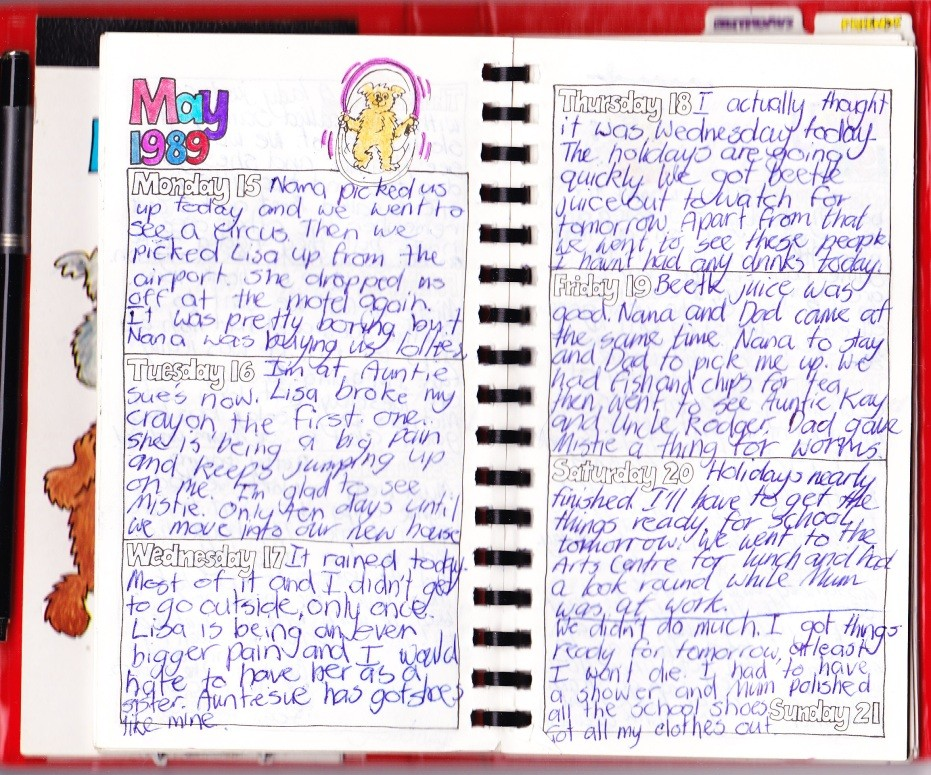 FRIENDS
May
1989
Monday 15 Nana picked us
up today and we went to
see a circus. Then we
picked Lisa up from the
airport. She dropped us
off at the motel again.
It was pretty boring but
Nana was buying us lollies
Tuesday 16 I'm at Auntie
sues now. Lisa broke my
crayon the first one.
she is being a big pain
and keeps jumping up
on me. I'm glad to see
Mistie. Only ten days until
we move into our new house
Wednesday 17 It rained today.
Most of it and I didn't get
to go outside, only once.
Lisa is being an even
bigger pain and I would
hate to have her as a
sister. Auntesue has got shoes
like mine
Thursday 18 I actually thought
it was Wednesday today.
The holidays are going
quickly. We got Beetle
juice out to watch for
tomorrow. Apart from that
we went to see these people.
I havnt had any drinks today.
Friday 19 Beetle juice was
good. Nana and Dad came at
the same time. Nana to stay
and Dad to pick me up. We
had fish and chips for tea
then went to see Auntie Kay
and Uncle Rodger. Dad gave
Mistie a thing for worms.
Saturday 20 Holidays nearly
finished. I'll have to get the
things ready, for school
tomorrow. We went to the
Arts Centre for lunch and had
a look round while Mum
was at work.
We didn't do much. I got things
ready for tomorrow, atleast
I won't die. I had to have
a shower and Mum polished
all the school shoes Sunday 21
Got all my clothes out.